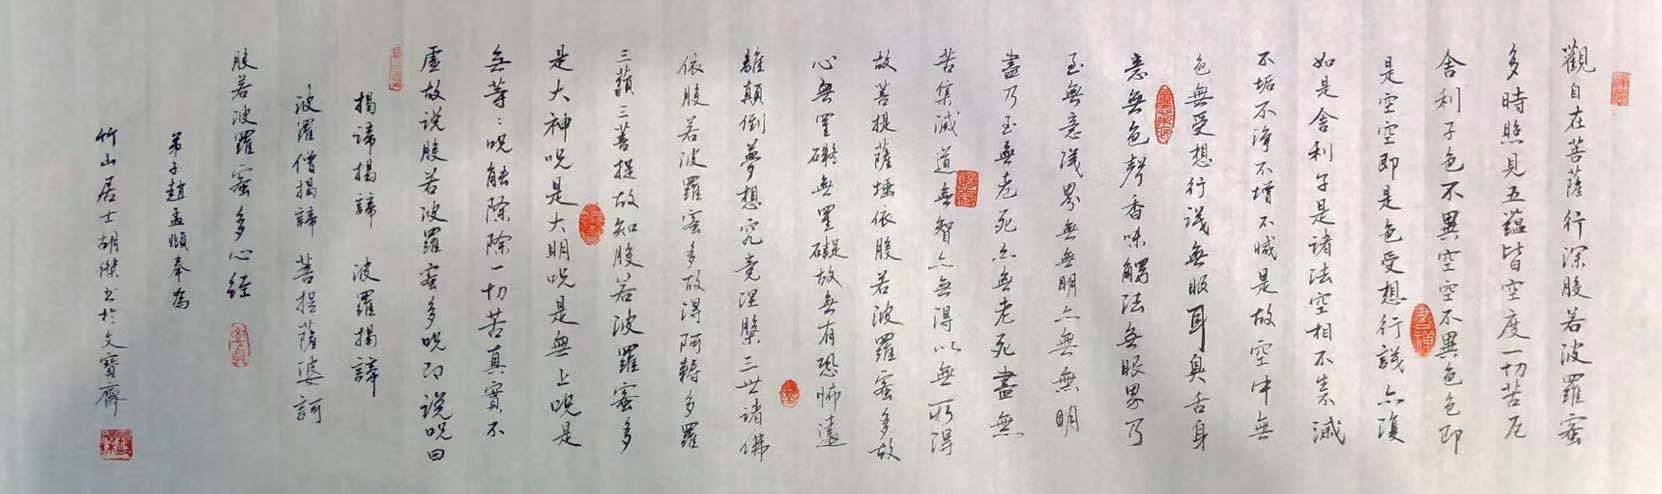 觀自在菩薩行深般若波羅蜜
多時照見五蘊皆空度一切苦厄
舍利子色不異空空不異色色即
是空空即是色受想行識亦復
如是舍利子是諸法空相不生滅
不垢不淨不增不減是故空中無
色無受想行識無眼耳鼻舌身
意無色聲香味觸法無眼界乃
至無意識界無無明亦無無明
盡乃至無老死亦無老死盡無
苦集滅道無智亦無得以無所得
故菩提薩埵依般若波羅蜜多故
心無罣礙無罣礙故無有恐怖遠
離顛倒夢想究竟涅槃三世諸佛
依般若波羅蜜多故得阿耨多羅
三藐三菩提故知般若波羅蜜多
是大神咒是大明咒是無上咒是
無等〻咒能除除一切苦真實不
虛故説般若波羅蜜多咒即説咒曰
揭諦揭諦 波羅揭諦
波羅僧揭諦 菩提薩婆訶
般若波羅蜜多心經
弟子趙孟頫奉爲
竹山居士胡傑書於文寶齋
書禪